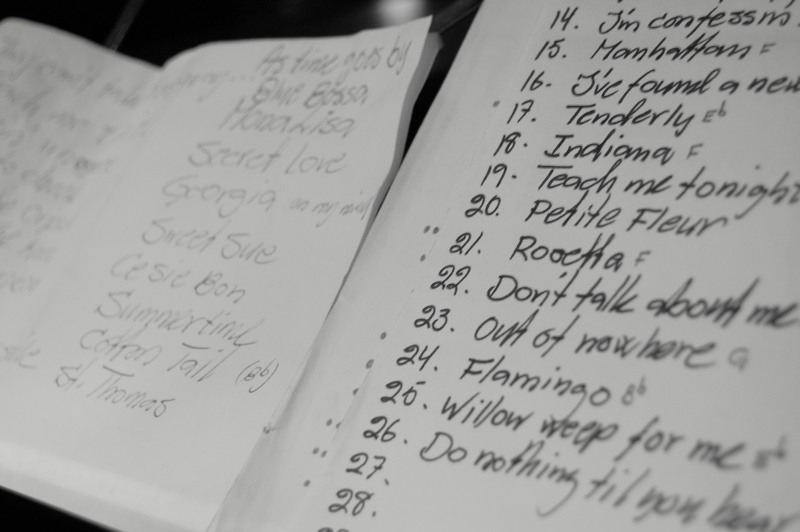 As time goes by
Blue Bossa
Mona Lisa
Secret Love
Georgia on my mind
Sweet Sue
C'e si e Bon
Summertime
Cotton Tail (Bb)
St. Thomas
14. I'm confessin
15. Manhattan F
16. I've found a new
17. Tenderly Eb
18. Indiana F
19. Teach me tonight
20. Petite Fleur
21. Rosetta F
22. Don't talk about me
23. Out of nowhere G
24. Flamingo Bb
25. Willow weep for me Eb
26. Do nothing til you hear
27.
28.